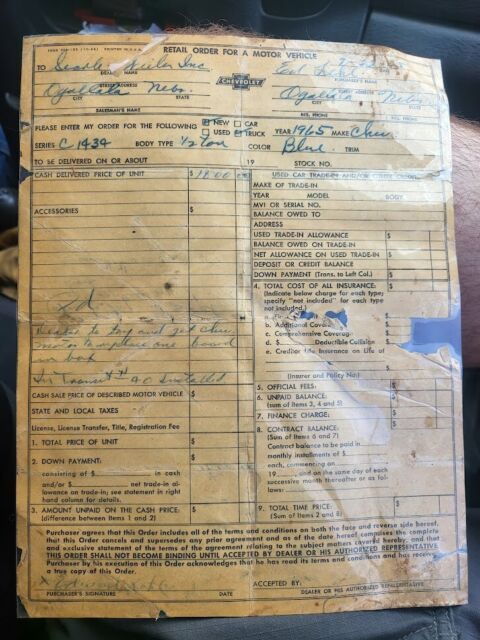 RETAIL ORDER FOR A MOTOR VEHICLE
TO Inc.
DEALER'S NAME PURCHASER'S NAME
CHEVROLET
STREET ADDRESS STREET ADDRESS
Ogallala Nebr. Ogallala Nebr
CITY STATE CITY
RES. PHONE
SALESMAN'S NAME BUS. PHONE
PLEASE ENTER MY ORDER FOR THE FOLLOWING NEW CAR
USED TRUCK YEAR 1965 MAKE Chev.
SERIES C 1434 BODY TYPE 1/2 ton COLOR Blue TRIM
TO BE DELIVERED ON OR ABOUT 19 STOCK NO.
CASH DELIVERED PRICE OF UNIT $ 1800
USED CAR TRADE-IN AND/OR OTHER CREDITS
MAKE OF TRADE-IN
YEAR MODEL BODY
MVI OR SERIAL NO.
ACCESSORIES $
BALANCE OWED TO
ADDRESS
USED TRADE-IN ALLOWANCE $
BALANCE OWED ON TRADE-IN
NET ALLOWANCE ON USED TRADE-IN $
DEPOSIT OR CREDIT BALANCE
DOWN PAYMENT (Trans. to Left Col.) $
4. TOTAL COST OF ALL INSURANCE:
(Indicate below charge for each type;
specify "not included" for each type
not included.)
b. Additional
c. Comprehensive Coverage
d. $ Deductible Collision
e. Creditor Life Insurance on Life of
(Insurer and Policy No.)
Dealer to try and get Chev
motor to replace one
in
In Transit 40 Installed
CASH SALE PRICE OF DESCRIBED MOTOR VEHICLE $
STATE AND LOCAL TAXES
License, License Transfer, Title, Registration Fee
1. TOTAL PRICE OF UNIT $
2. DOWN PAYMENT: $
consisting of $ in cash
and/or $ net trade-in al-
lowance on trade-in; see statement in right
hand column for details.
3. AMOUNT UNPAID ON THE CASH PRICE: $
(difference between Items 1 and 2)
5. OFFICIAL FEES: $
6. UNPAID BALANCE: $
(sum of Items 3, 4 and 5)
7. FINANCE CHARGE: $
8. CONTRACT BALANCE: $
(Sum of Items 6 and 7)
Contract balance to be paid in
monthly installments of $
each, commencing on
19 , and on the same day of each
successive month thereafter or as fol-
lows:
9. TOTAL TIME PRICE: $
(Sum of Items 2 and 8)
Purchaser agrees that this Order includes all of the terms and conditions on both the face and reverse side hereof,
that this Order cancels and supersedes any prior agreement and as of the date hereof comprises the complete
and exclusive statement of the terms of the agreement relating to the subject matters covered hereby, and that
THIS ORDER SHALL NOT BECOME BINDING UNTIL ACCEPTED BY DEALER OR HIS AUTHORIZED REPRESENTATIVE.
Purchaser by his execution of this Order acknowledges that he has read its terms and conditions and has received
a true copy of this Order.
ACCEPTED BY:
PURCHASER'S SIGNATURE DATE DEALER OR HIS AUTHORIZED REPRESENTATIVE